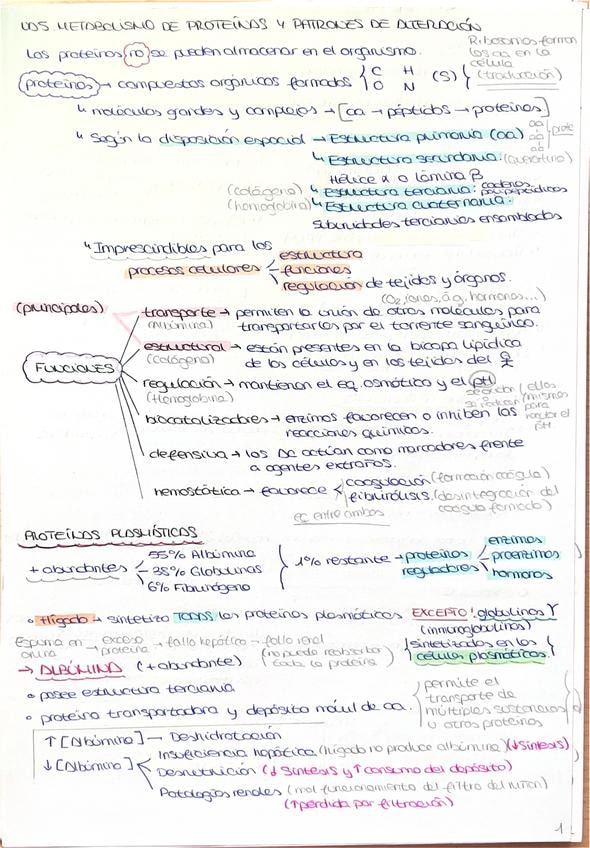 UD5. METABOLISMO DE PROTEÍNAS Y PATRONES DE ALTERACIÓN
Las proteínas no se pueden almacenar en el organismo.
Ribosomas forman
los aa en la
célula
(traducción)
proteínas → compuestos orgánicos formados { C H O N (S)
↳ moléculas grandes y complejas → [aa → péptidos → proteínas]
↳ Según la disposición espacial → Estructura primaria (aa)
↳ Estructura secundaria: (queratina)
Hélice α o lámina β
(colágeno) ↳ Estructura terciaria: cadenas polipeptídicas
(hemoglobina) ↳ Estructura cuaternaria:
subunidades terciarias ensambladas
↳ Imprescindibles para los
procesos celulares
estructura
funciones
regulación de tejidos y órganos.
(O₂, iones, a.g, hormonas...)
(principales)
FUNCIONES
transporte → permiten la unión de otras moléculas para
(Albúmina) transportarlos por el torrente sanguíneo.
estructural → están presentes en la bicapa lipídica
(colágeno) de las células y en los tejidos del
regulación → mantienen el eq. osmótico y el pH
(Hemoglobina)
biocatalizadores → enzimas favorecen o inhiben las
reacciones químicas.
defensiva → los Ac actúan como marcadores frente
a agentes extraños.
hemostática → favorece < coagulación (formación coágulo)
fibrinólisis (desintegración del
coágulo formado)
eq entre ambos
PROTEÍNAS PLASMÁTICAS
+ abundantes
55% Albúmina
38% Globulinas
6% Fibrinógeno
1% restante → proteínas
reguladoras
enzimas
proenzimas
hormonas
• Hígado → sintetiza TODAS las proteínas plasmáticas EXCEPTO! globulinas γ
(inmunoglobulinas)
{sintetizadas en las
células plasmáticas.}
Espuma en
orina → exceso
proteína → fallo hepático → fallo renal
(no puede reabsorber
toda la proteína)
→ ALBÚMINA (+ abundante)
• posee estructura terciaria
• proteína transportadora y depósito móvil de aa.
permite el
transporte de
múltiples sustancias
u otras proteínas
↑ [Albúmina] → Deshidratación
↓ [Albúmina]
Insuficiencia hepática (hígado no produce albúmina) (↓ síntesis)
Desnutrición (↓ síntesis y ↑ consumo del depósito)
Patologías renales (mal funcionamiento del filtro del riñón)
(↑ pérdida por filtración)
1